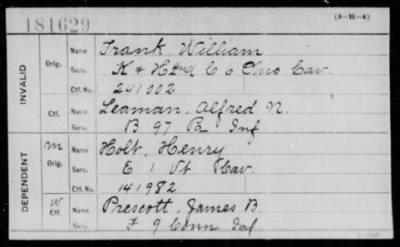 181629
(3-M-4)
INVALID
Orig. Name Frank, William
Serv. K & H 2nd C 6 Ohio Cav
Ctf. No. 241002
Ctf. Name Leaman, Alfred N.
Serv. B 97 Pa Inf
DEPENDENT
M Orig. Name Holt, Henry
Serv. E 1 Vt Cav.
Ctf. No. 141982
W Ctf. Name Prescott, James B.
Serv. F 9 Conn Inf